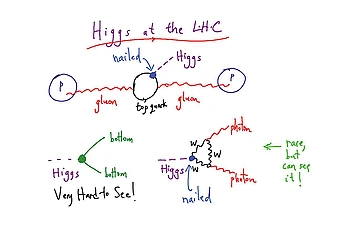 Higgs at the LHC
nailed
Higgs
P
P
gluon
top quark
gluon
bottom
bottom
Higgs
Very Hard to See!
photon
W
W
W
Higgs
photon
nailed
rare,
but
can see
it!